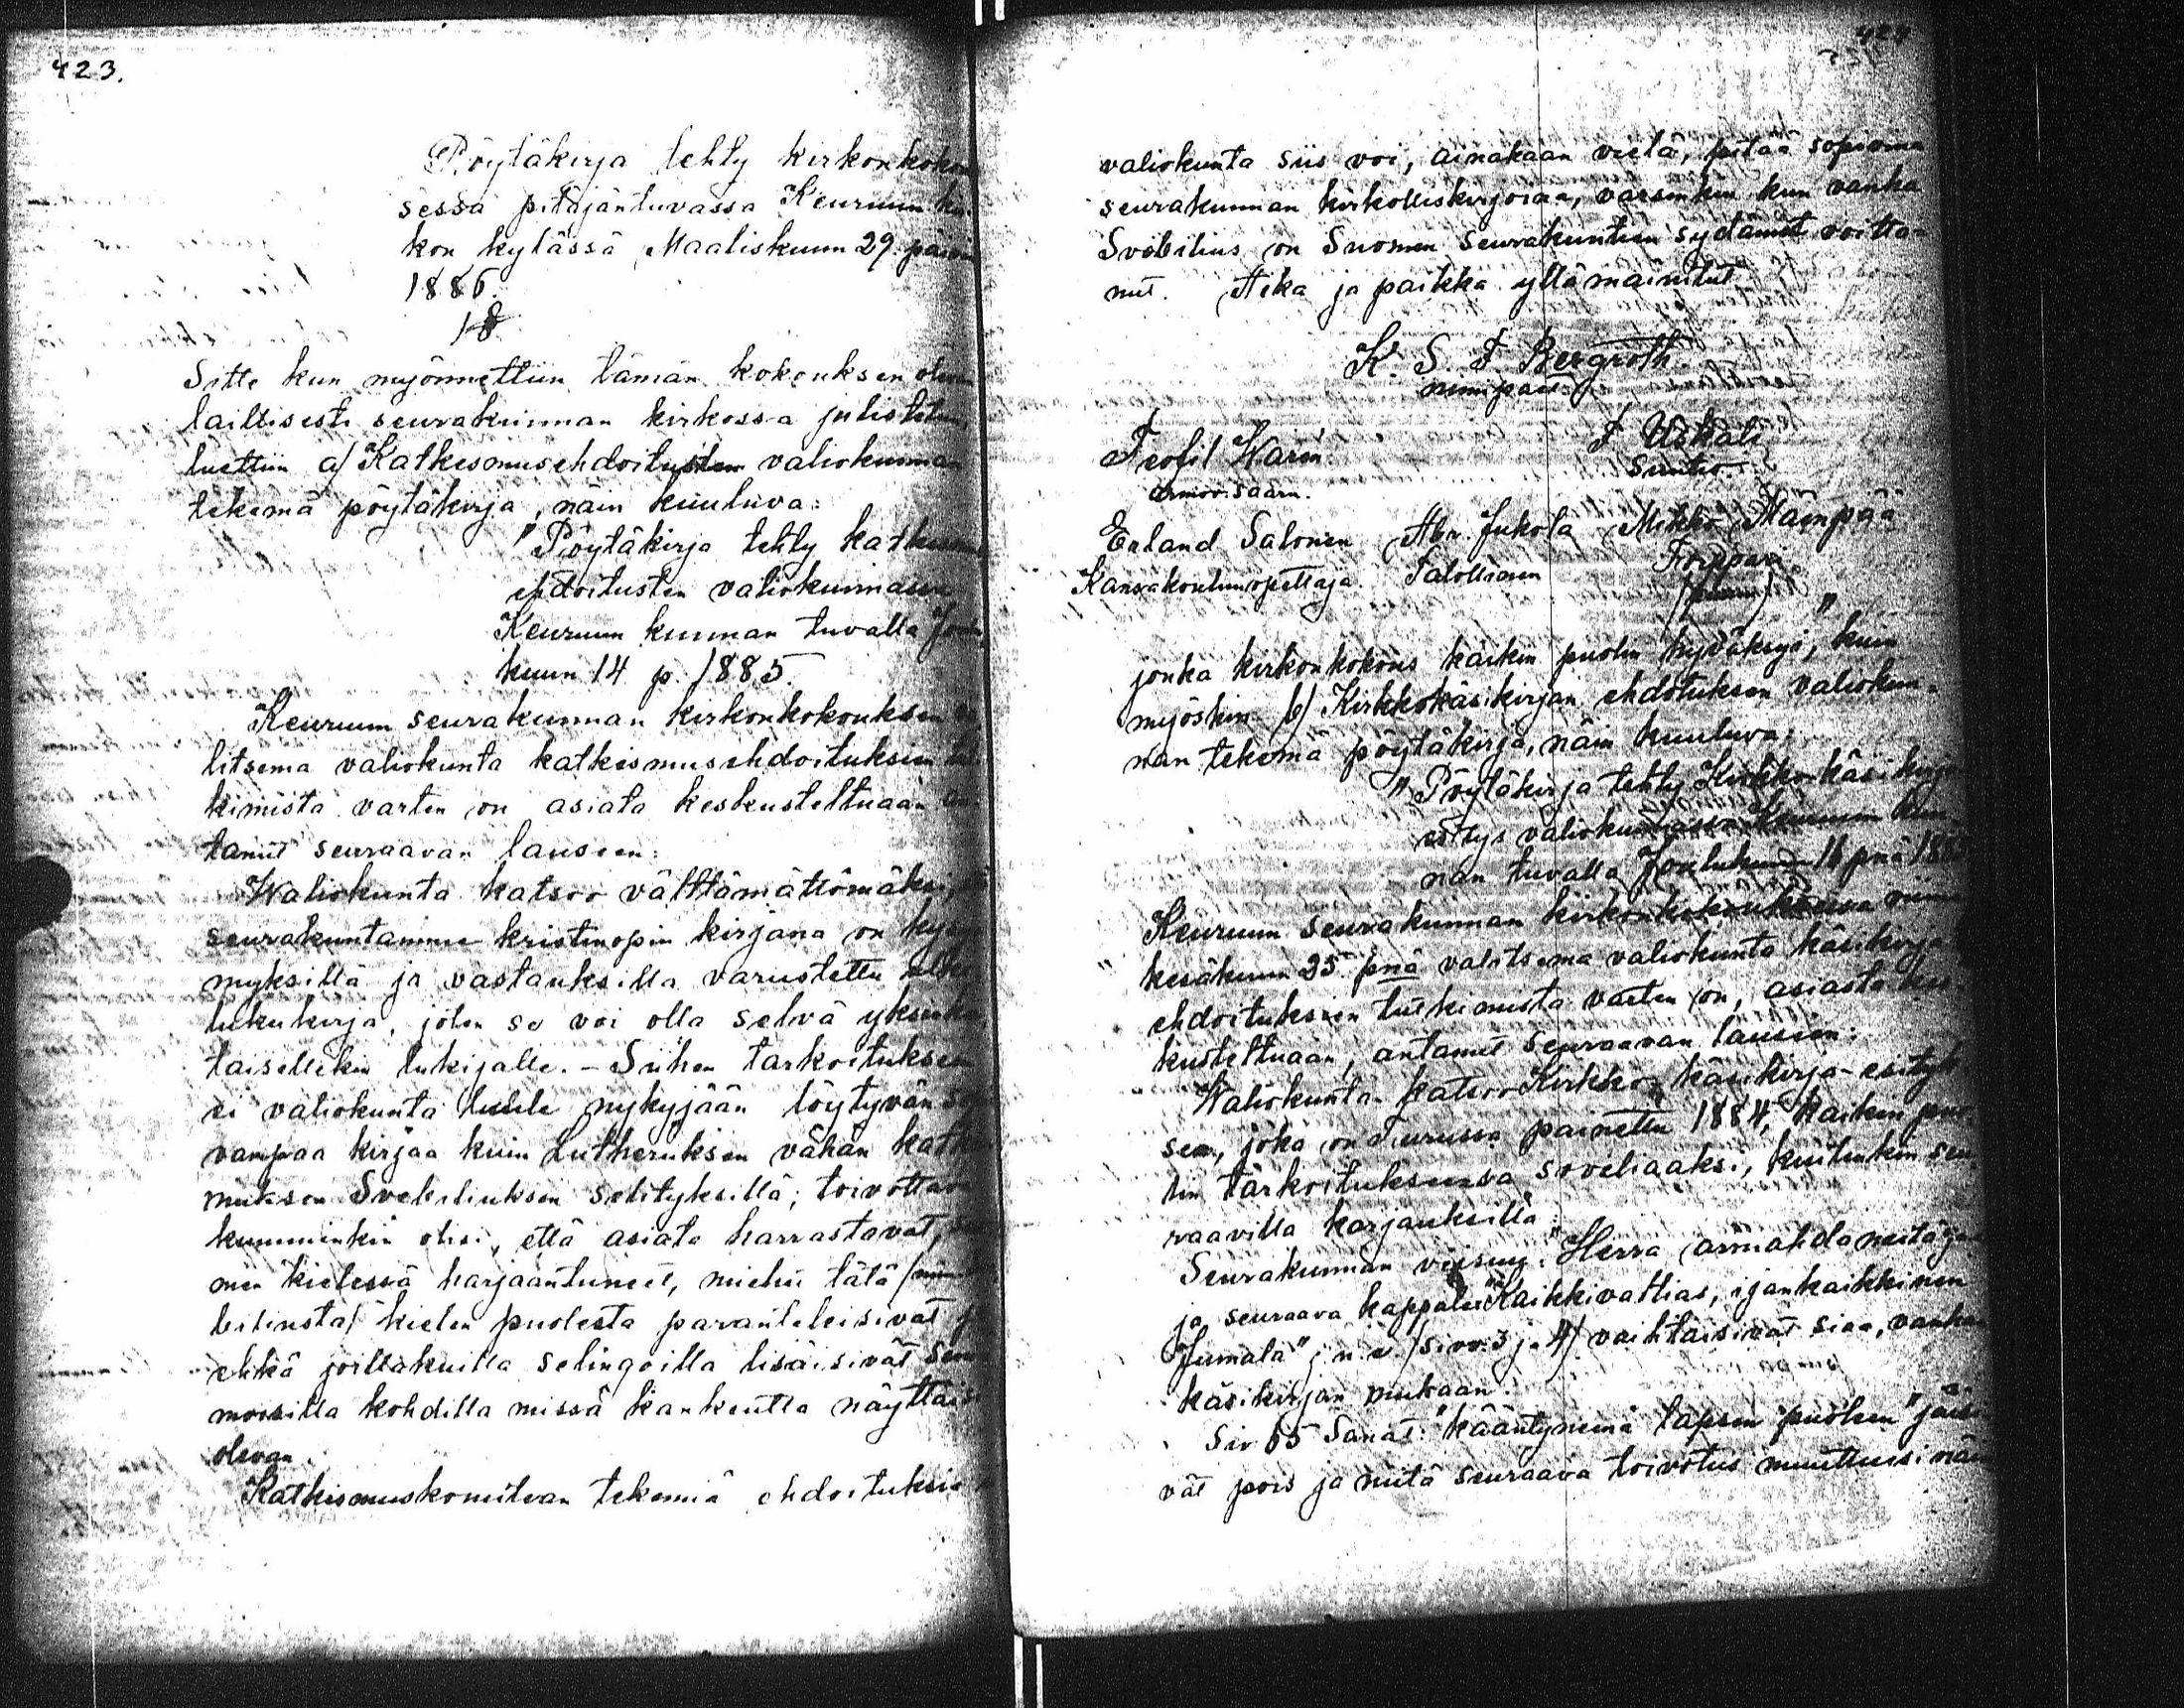 423.
Pöytäkirja tehty kirkonkokou
sessa pitäjäntuvassa Keuruun kir
kon kylässä Maaliskuun 29. päivä
1886.
18
Sitte kun myönnettiin tämän kokouksen olevan
laillisesti seurakunnan kirkossa julistetun,
luettiin a) Katkesmusehdoitusten valiokunnan
tekemä pöytäkirja, näin kuuluva:
"Pöytäkirja tehty katkesmus
ehdoitusten valiokunnassa
Keuruun kunnan tuvalla Joulu
kuun 14 p. 1885.
Keuruun seurakunnan kirkonkokouksen
litsema valiokunta katkesmusehdoituksien tut
kimista varten on asiata keskusteltuaan an
tanut seuraavan lauseen:
Waliokunta katsoo välttämättömäksi,
seurakuntamme kristinopin kirjana on kysy
myksillä ja vastauksilla varustettu
lukukirja, joten se voi olla selvä yksinker
taisellekin lukijalle. - Siihen tarkoitukseen
ei valiokunta luule nykyjään löytyvän so
vampaa kirjaa kuin Lutheruksen vähän katkes
muksen Svebiliuksen selityksillä; toivottava
kumminkin olisi, että asiata harrastavat,
men kielessä harjaantuneet, miehet tätä
biliusta) kielen puolesta paranteleisivat j
ehkä joillakuilla selingoilla lisäisivät sem
moisilla kohdilla missä kankeutta näyttäisi
olevan.
Katkismuskomitean tekemiä ehdoituksia
424
valiokunta siis voi, ainakaan vielä, pitää sopivina
seurakunnan kirkolliskirjoiaa, varsinkin kun vanha
Svebilius on Suomen seurakuntien sydämet voitta-
nut. Aika ja paikka yllämainitut
K. S. F. Bergroth.
nimipast.
Teofil Warén
armov. saarn.
F Uskali
Suntio
Erland Salonen
Kansakoulunopettaja
Abr. Jukola
Talollinen
Mikko Mäenpää
Torppari.
(puum) "
jonka kirkonkokous kaikin puolin hyväksyi, kuin
myöskin b) Kirkkokäsikirjan ehdotuksen valiokun-
nan tekemä pöytäkirja, näin kuuluva:
"Pöytäkirja tehty Kirkkokäsikirja
esitys valiokunnassa Keuruun kun
nan tuvalla Joulukuun 16 pnä 1885
Keuruun seurakunnan kirkonkokouksessa viime
kesäkuun 25 pnä valitsema valiokunta käsikirja
ehdoituksien tutkimista varten on, asiasta kes-
kusteltuaan, antanut seuraavan lauseen:
Waliokunta katsoo Kirkko-käsikirja-esityk
sen, joka on Turussa painettu 1884, kaikin puo
lin tarkoitukseensa soveliaaksi, kuitenkin seu
raavilla korjauksilla:
Seurakunnan veisuu: "Herra armahda meitä j.
ja seuraava kappale "Kaikkivaltias, ijankaikkinen
Jumala" j. n. e. (sivv. 3 j. 4) vaihtaisivat siaa, vanhan
käsikirjan mukaan.
Siv 65 Sanat: "kääntyneinä lapsen puoleen" jäisi-
vät pois ja niitä seuraava toivotus muuttuisi näin